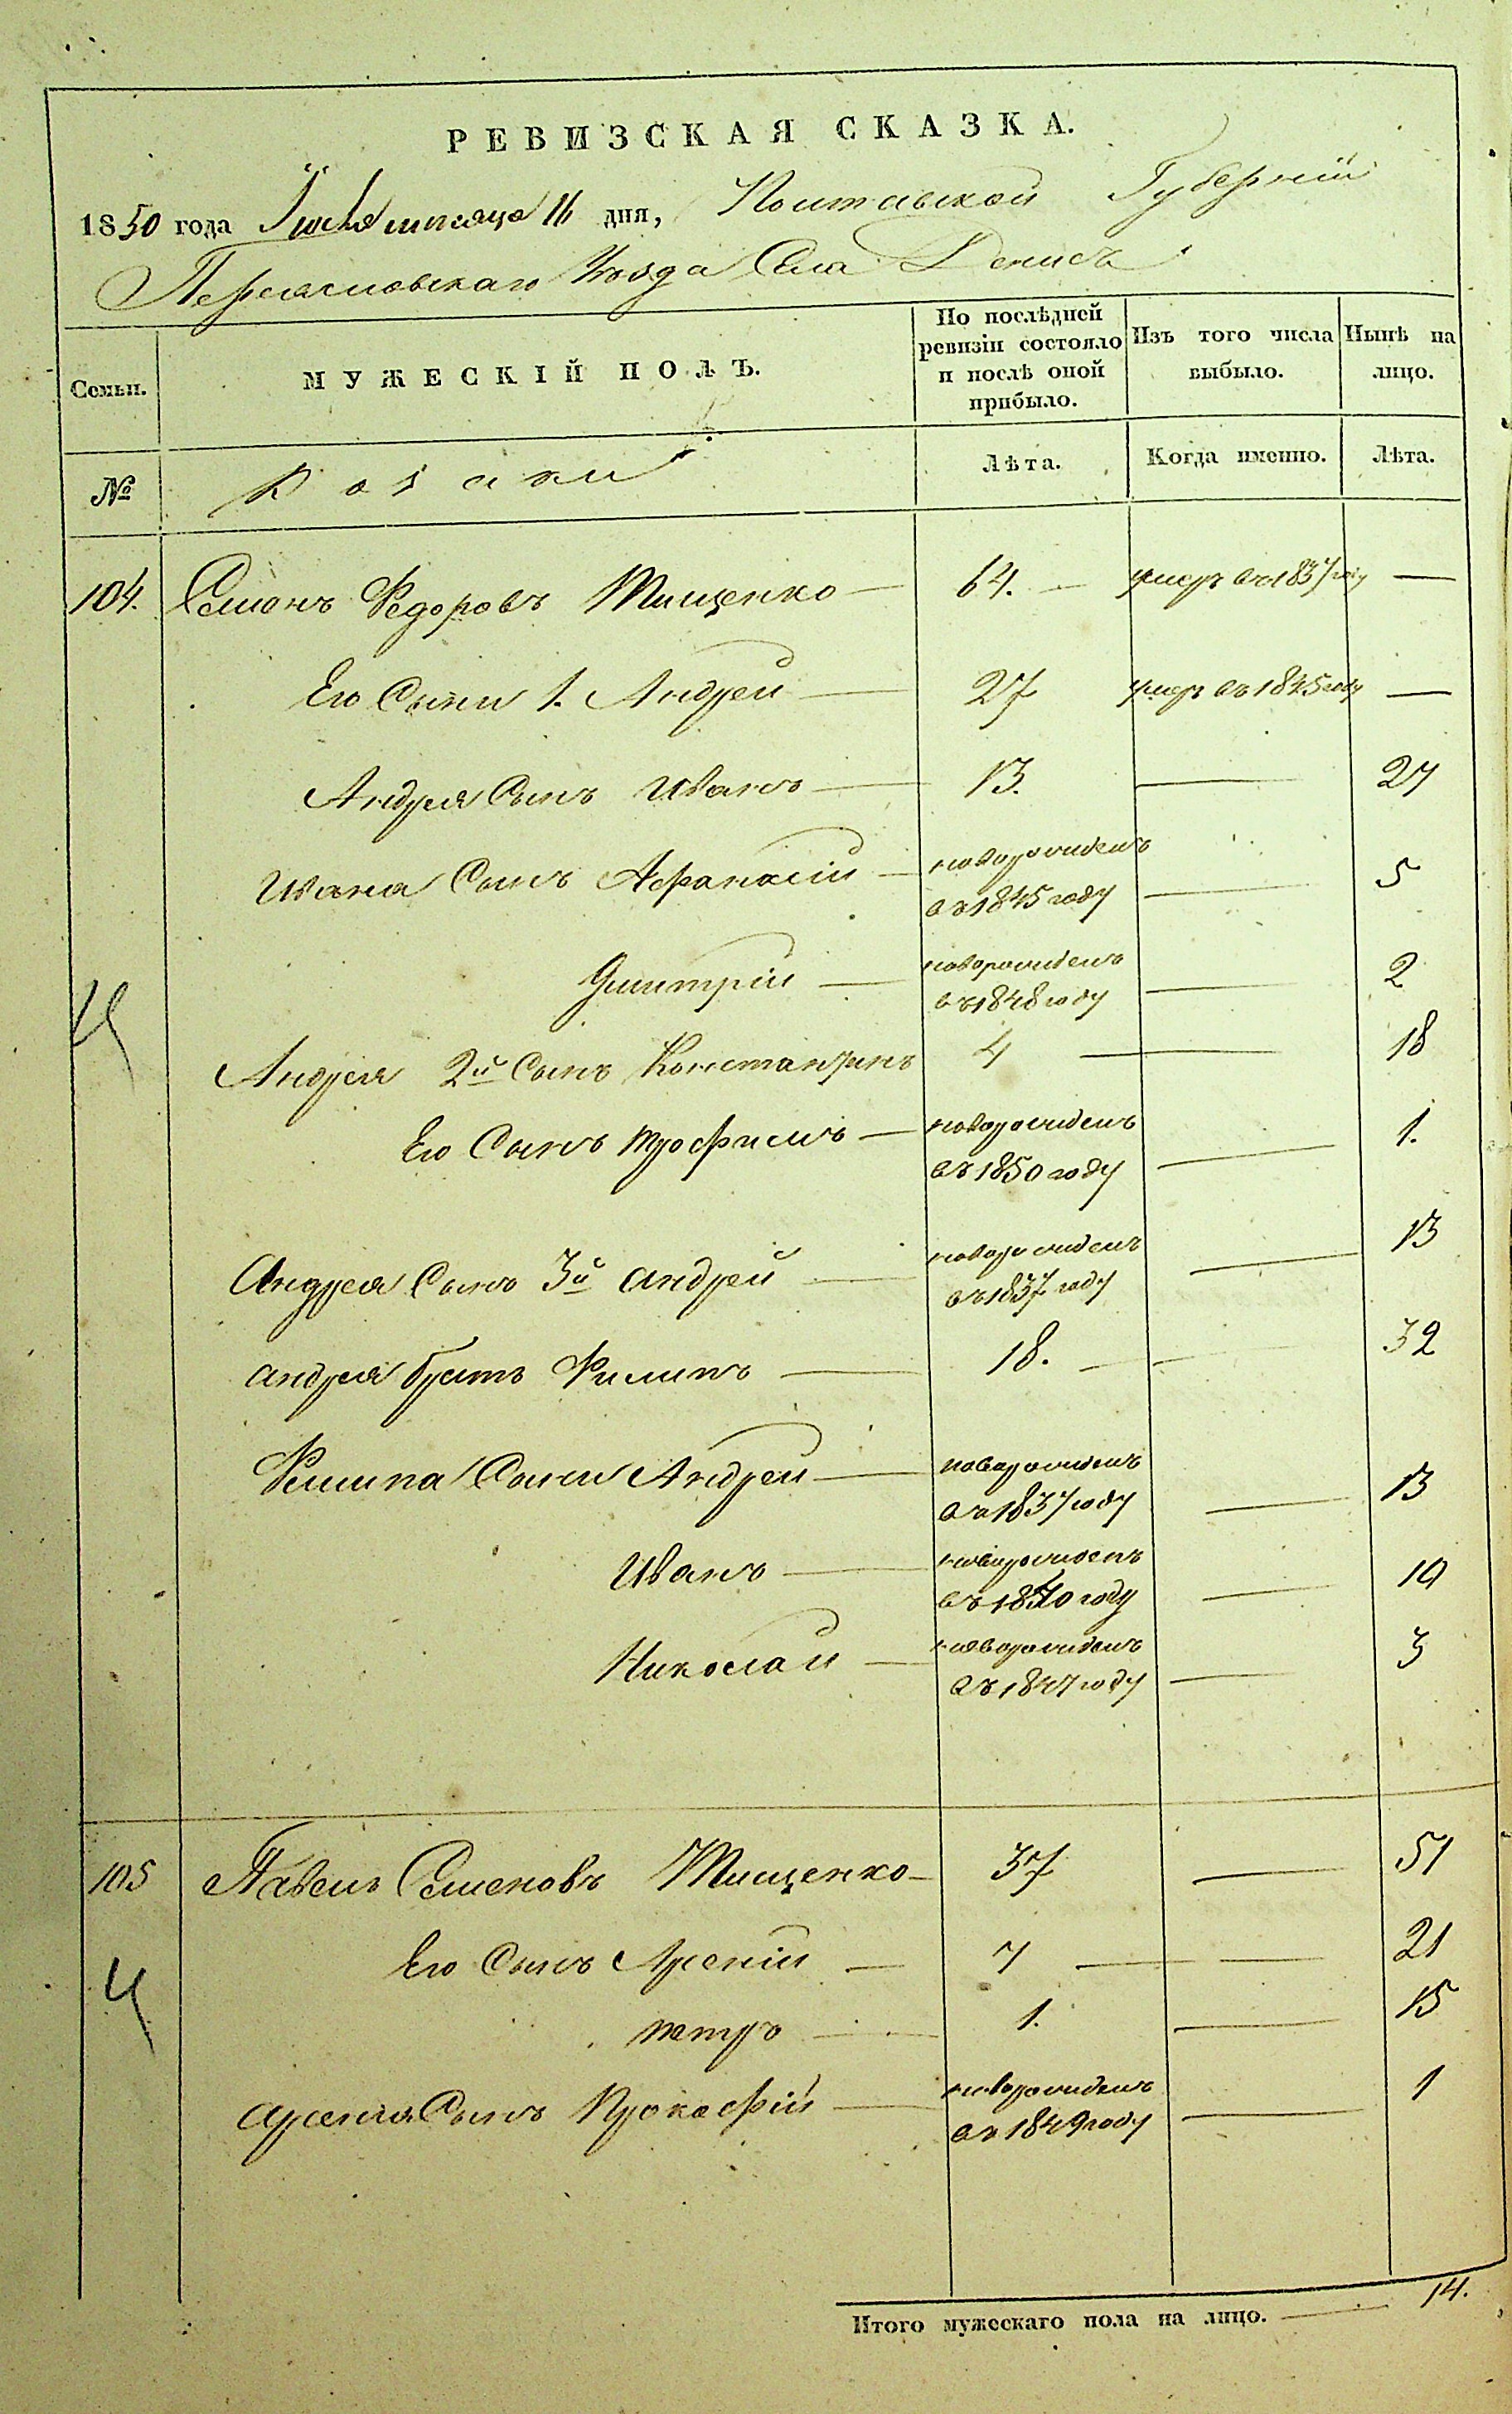 РЕВИЗСКАЯ СКАЗКА.
1850 года Іюля месяца 11 дня, Полтавской Губерніи
Переяславскаго Уѣзда Села Денисъ
Семьи.
МУЖЕСКІЙ ПОЛЪ.
По послѣдней ревизіи состояло и послѣ оной прибыло.
Изъ того числа выбыло.
Нынѣ на лицо.
№
Козаки
Лѣта.
Когда именно.
Лѣта.
104. Семенъ Федоровъ Тищенко — 64. — умеръ въ 1837 году —
Его Сыни 1. Андрей — 27 умеръ въ 1845 году —
Андрея Сынъ Иванъ — 13. — 27
Ивана Сынъ Афанасій — новорожденъ въ 1845 году — 5
Дмитрій — новорожденъ въ 1848 году — 2
Андрея 2й Сынъ Константинъ 4 — 18
Его Сынъ Трофимъ — новорожденъ въ 1850 году — 1.
Андрея Сынъ 3й Андрей — новорожденъ въ 1837 году — 13
Андрея братъ Филипъ — 18. — 32
Филипа Сыни Андрей — новорожденъ въ 1837 году — 13
Иванъ — новорожденъ въ 1840 году — 10
Николай — новорожденъ въ 1847 году — 3
105 Павелъ Семеновъ Тищенко — 37 — 51
Его Сынъ Арсеній — 7 — 21
Петръ — 1. — 15
Арсенія Сынъ Прокофій — новорожденъ въ 1849 году — 1
Итого мужескаго пола на лицо. — 14.